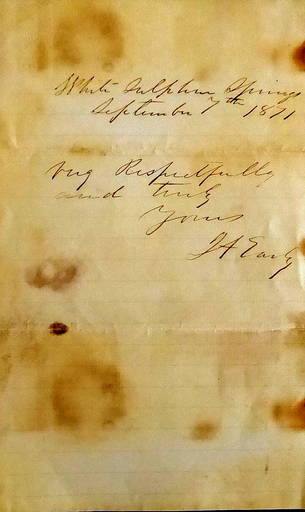 White Sulphur Springs
September 7th 1871
Very Respectfully
and truly
Yours
J A Early